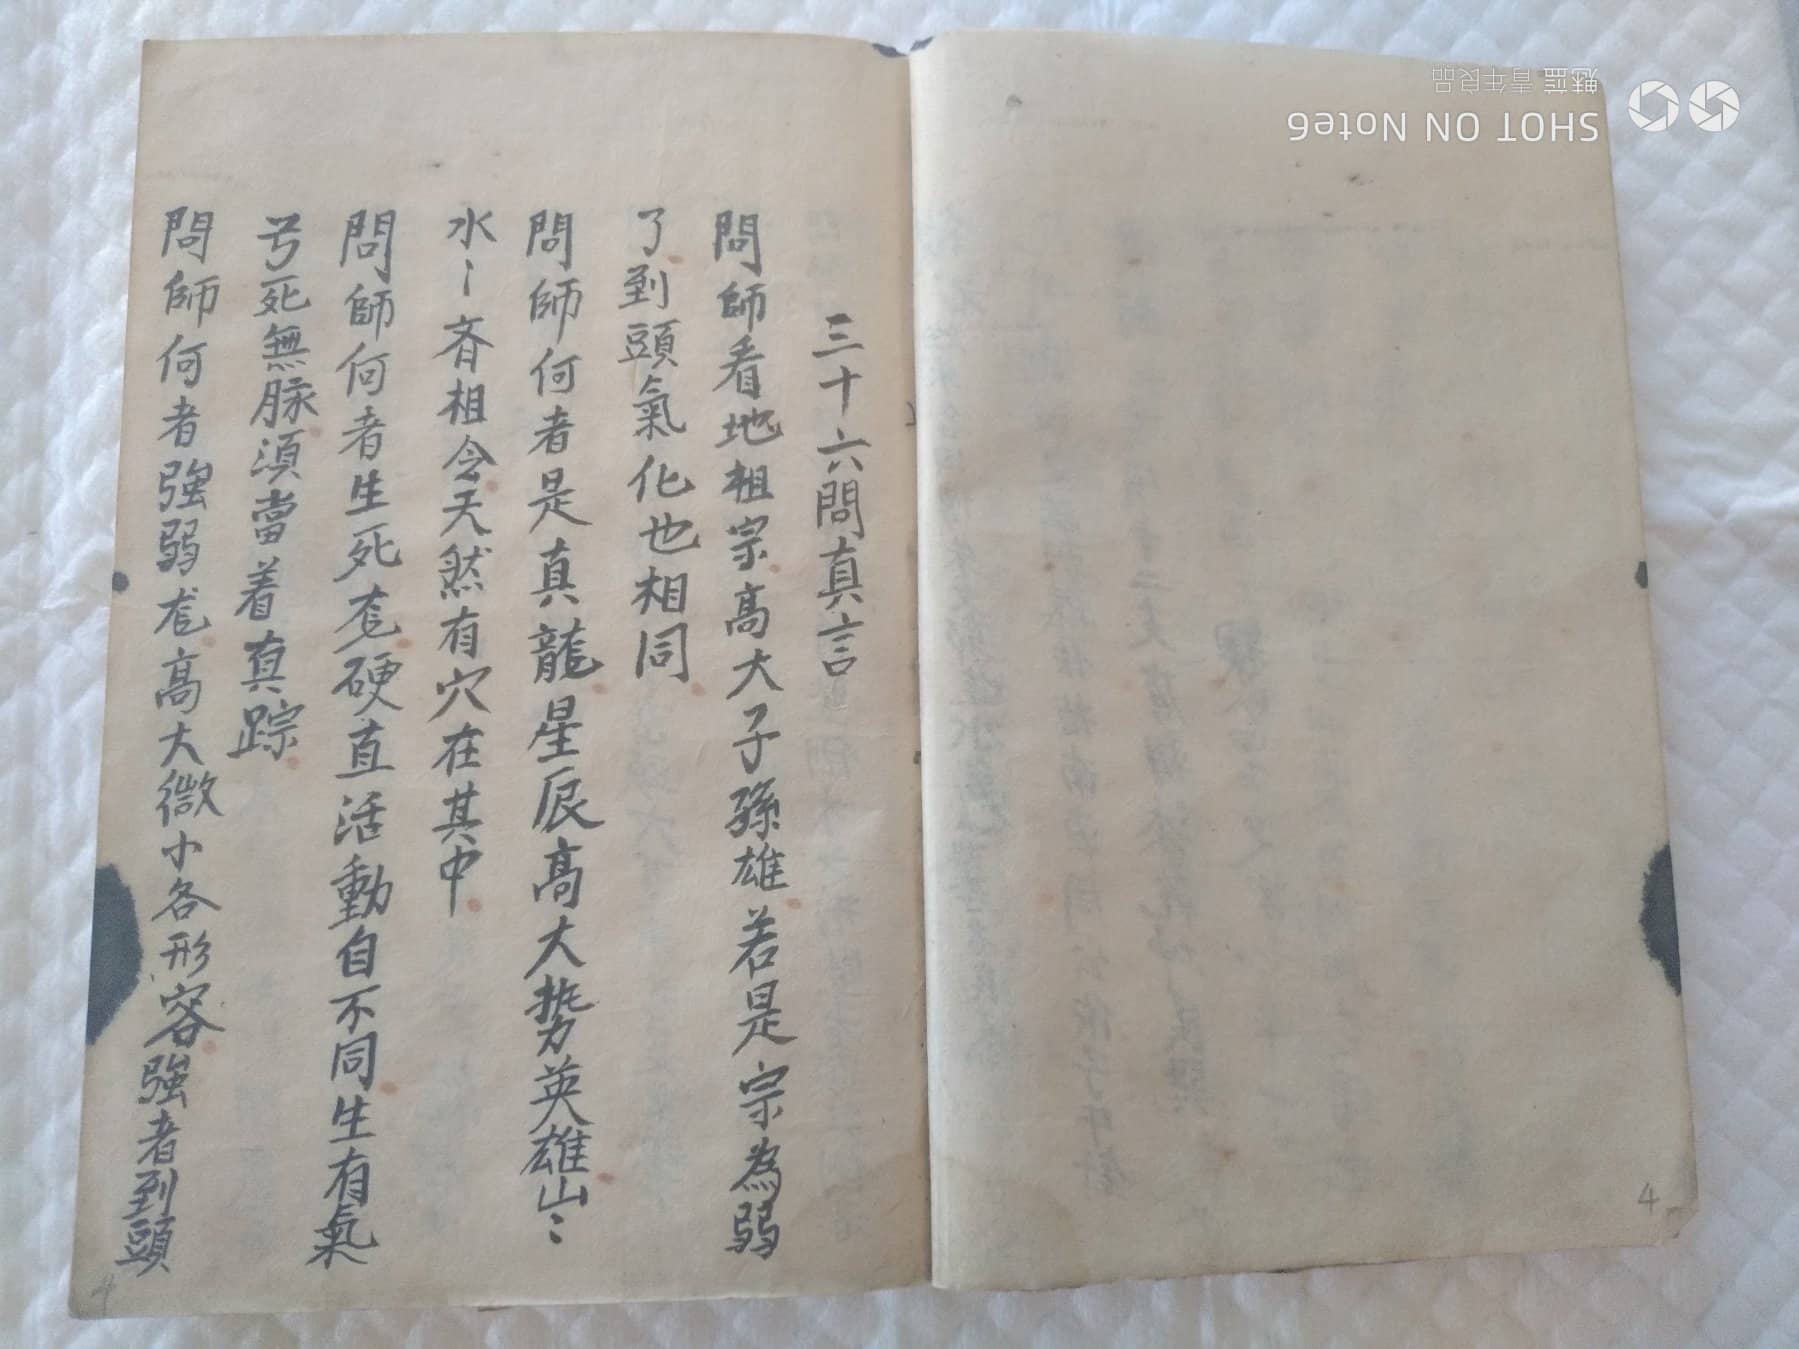 三十六問真言
問師看地祖宗高大子孫雄若是宗為弱
了到頭氣化也相同
問師何者是真龍星辰高大勢英雄山〻
水〻斉相令天然有穴在其中
問師何者生死硬直活動自不同生有氣
死無脉須當着真踪
問師何者強弱高大微小各形容強者到頭
4
4
SHOT ON Note6
魅蓝 青年良品